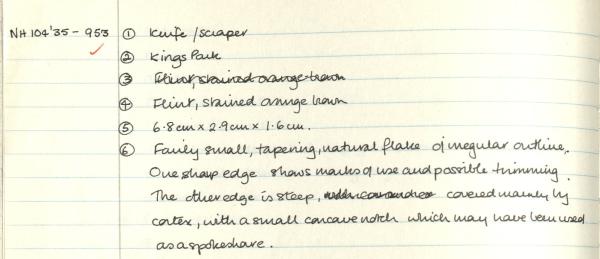 NH 104'35 - 953 ① Knife / scraper
② Kings Park
③ Flint, stained orange-brown
④ Flint, stained orange brown
⑤ 6.8cm x 2.9cm x 1.6cm.
⑥ Fairly small, tapering, natural flake of irregular outline.
One sharp edge shows marks of use and possible trimming.
The other edge is steep, covered mainly by
cortex, with a small concave notch which may have been used
as a spokeshave.